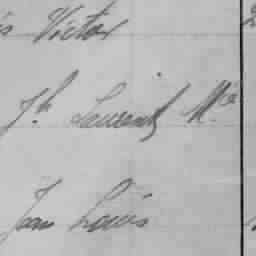 is Victor
Jh Laurent Me
Jean Louis